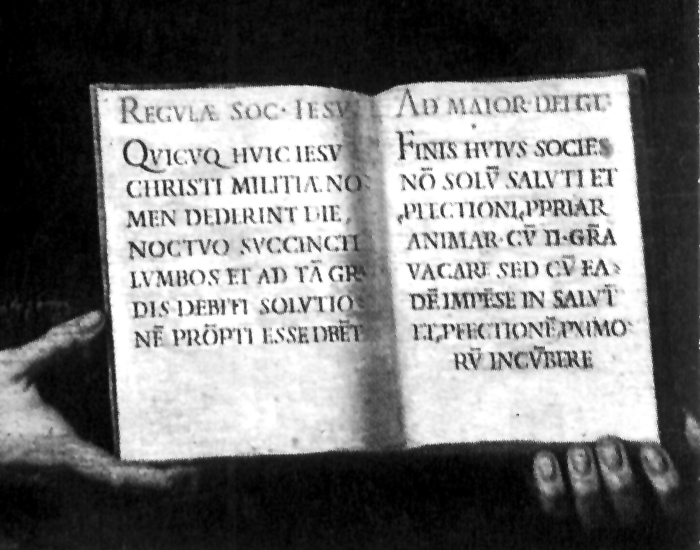 REGVLÆ SOC· IESV
QVICVQ HVIC IESV
CHRISTI MILITIÆ NO
MEN DEDERINT DIE,
NOCTVQ SVCCINCTI
LVMBOS ET AD TĀ GRĀ
DIS DEBITI SOLVTIO
NĒ PRŌPTI ESSE DBĒT
AD MAIOR· DEI GL·
FINIS HVIVS SOCIE
NŌ SOLV̄ SALVTI ET
PFECTIONI PPRIAR
ANIMAR· CV̄ DI· GR̄A
VACARE SED CV̄ EA
DĒ IMPĒSE IN SALVT̄
ET PFECTIONĒ PXIMO
RV̄ INCV̄BERE